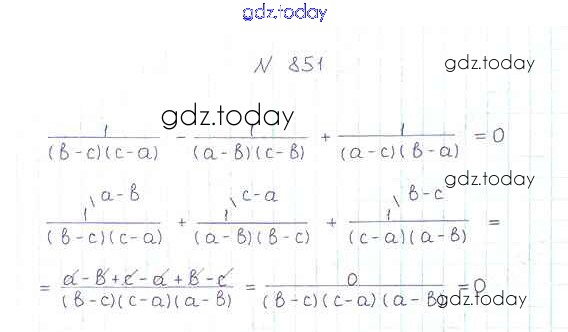 gdz.today
N 851
gdz.today
gdz.today
1/((в-c)(c-a)) - 1/((a-в)(c-в)) + 1/((a-c)(в-a)) = 0
gdz.today
1\a-в/((в-c)(c-a)) + 1\c-a/((a-в)(в-c)) + 1\в-c/((c-a)(a-в)) =
= (a-в+c-a+в-c)/((в-c)(c-a)(a-в)) = 0/((в-c)(c-a)(a-в)) = 0
gdz.today